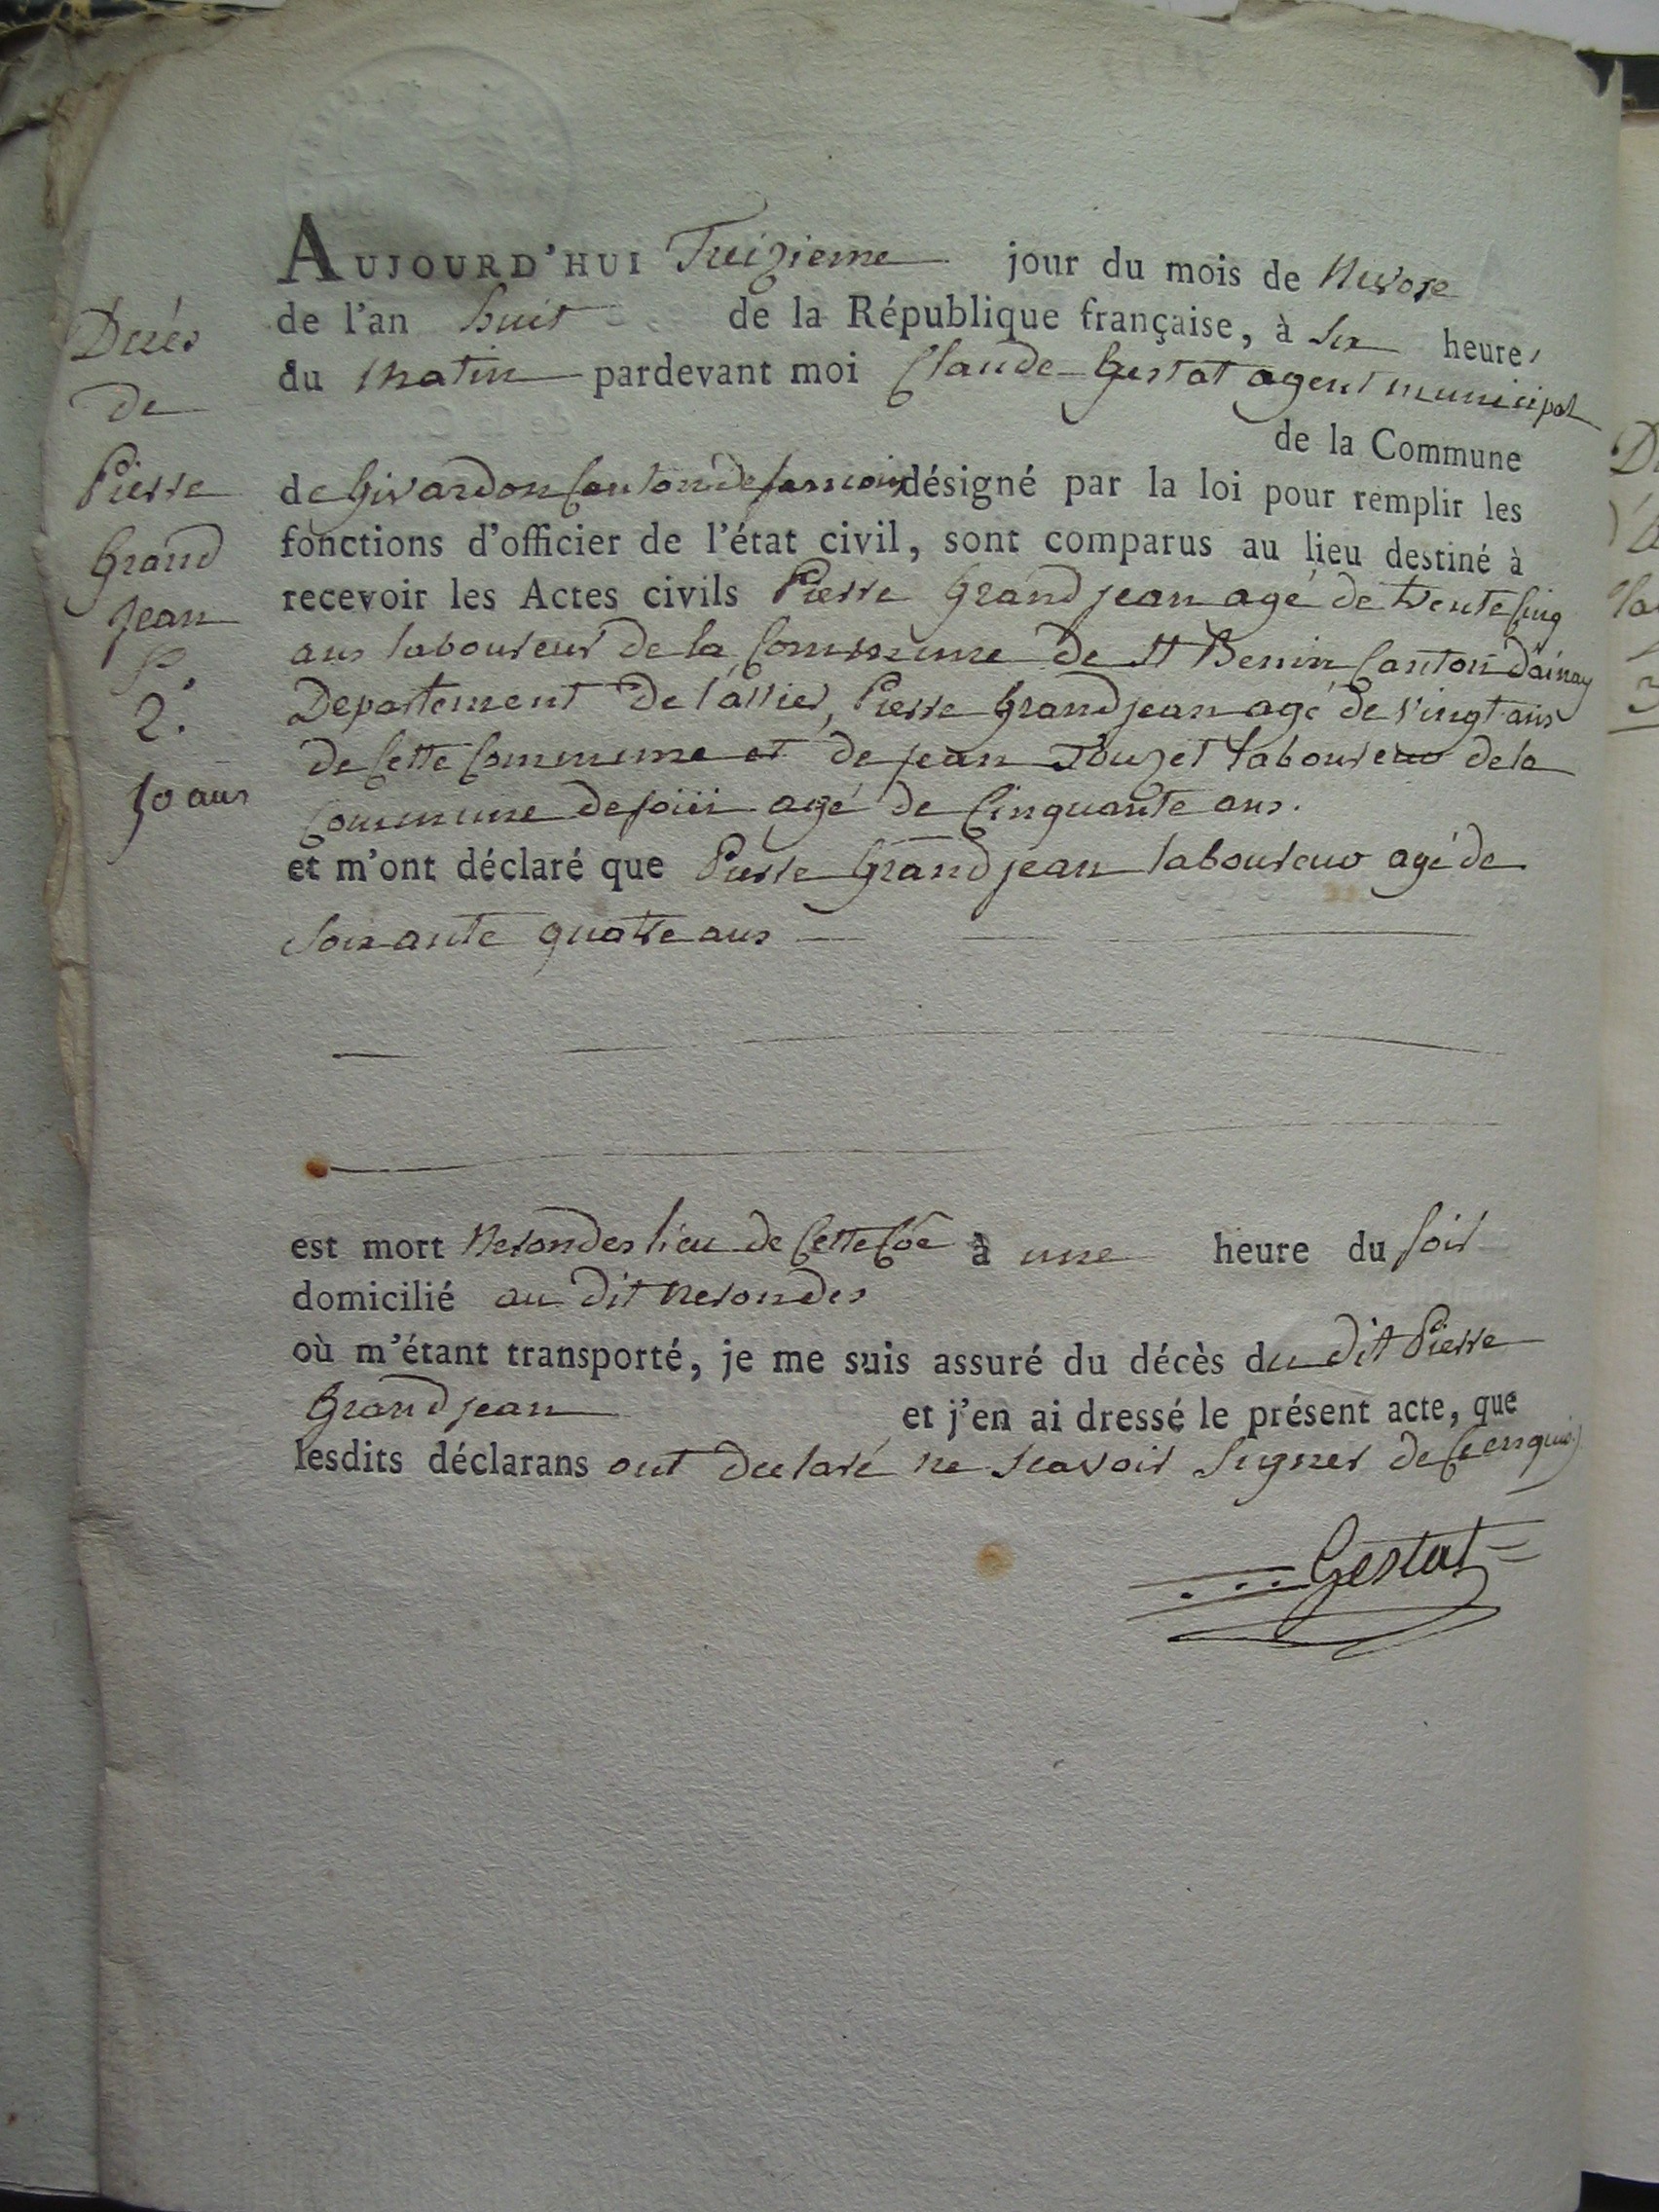 Decés
de
Pierre
Grand
jean
P.
2.
50 ans
AUJOURD'HUI Treizieme jour du mois de Nivose
de l'an huit de la République française, à six heures
du matin pardevant moi Claude Gestat agent municipal
de la Commune
de Givardon Canton de sancoins désigné par la loi pour remplir les
fonctions d'officier de l'état civil, sont comparus au lieu destiné à
recevoir les Actes civils Pierre Grand jean agé de trente Cinq
ans laboureur de la Commune de St Benin Canton d'ainay
Departement de l'allier, Pierre Grand jean agé de vingt ans
de Cette Commune et de jean Touzet laboureur de la
Commune de agé de Cinquante ans.
et m'ont déclaré que Pierre Grand jean laboureur agé de
Soixante quatre ans
est mort Nerondes lieu de Cette Coe à une heure du soir
domicilié au dit Nerondes
où m'étant transporté, je me suis assuré du décès du dit Pierre
Grand jean et j'en ai dressé le présent acte, que
lesdits déclarans ont declaré ne scavoir signer de Ce enquis
Gestat